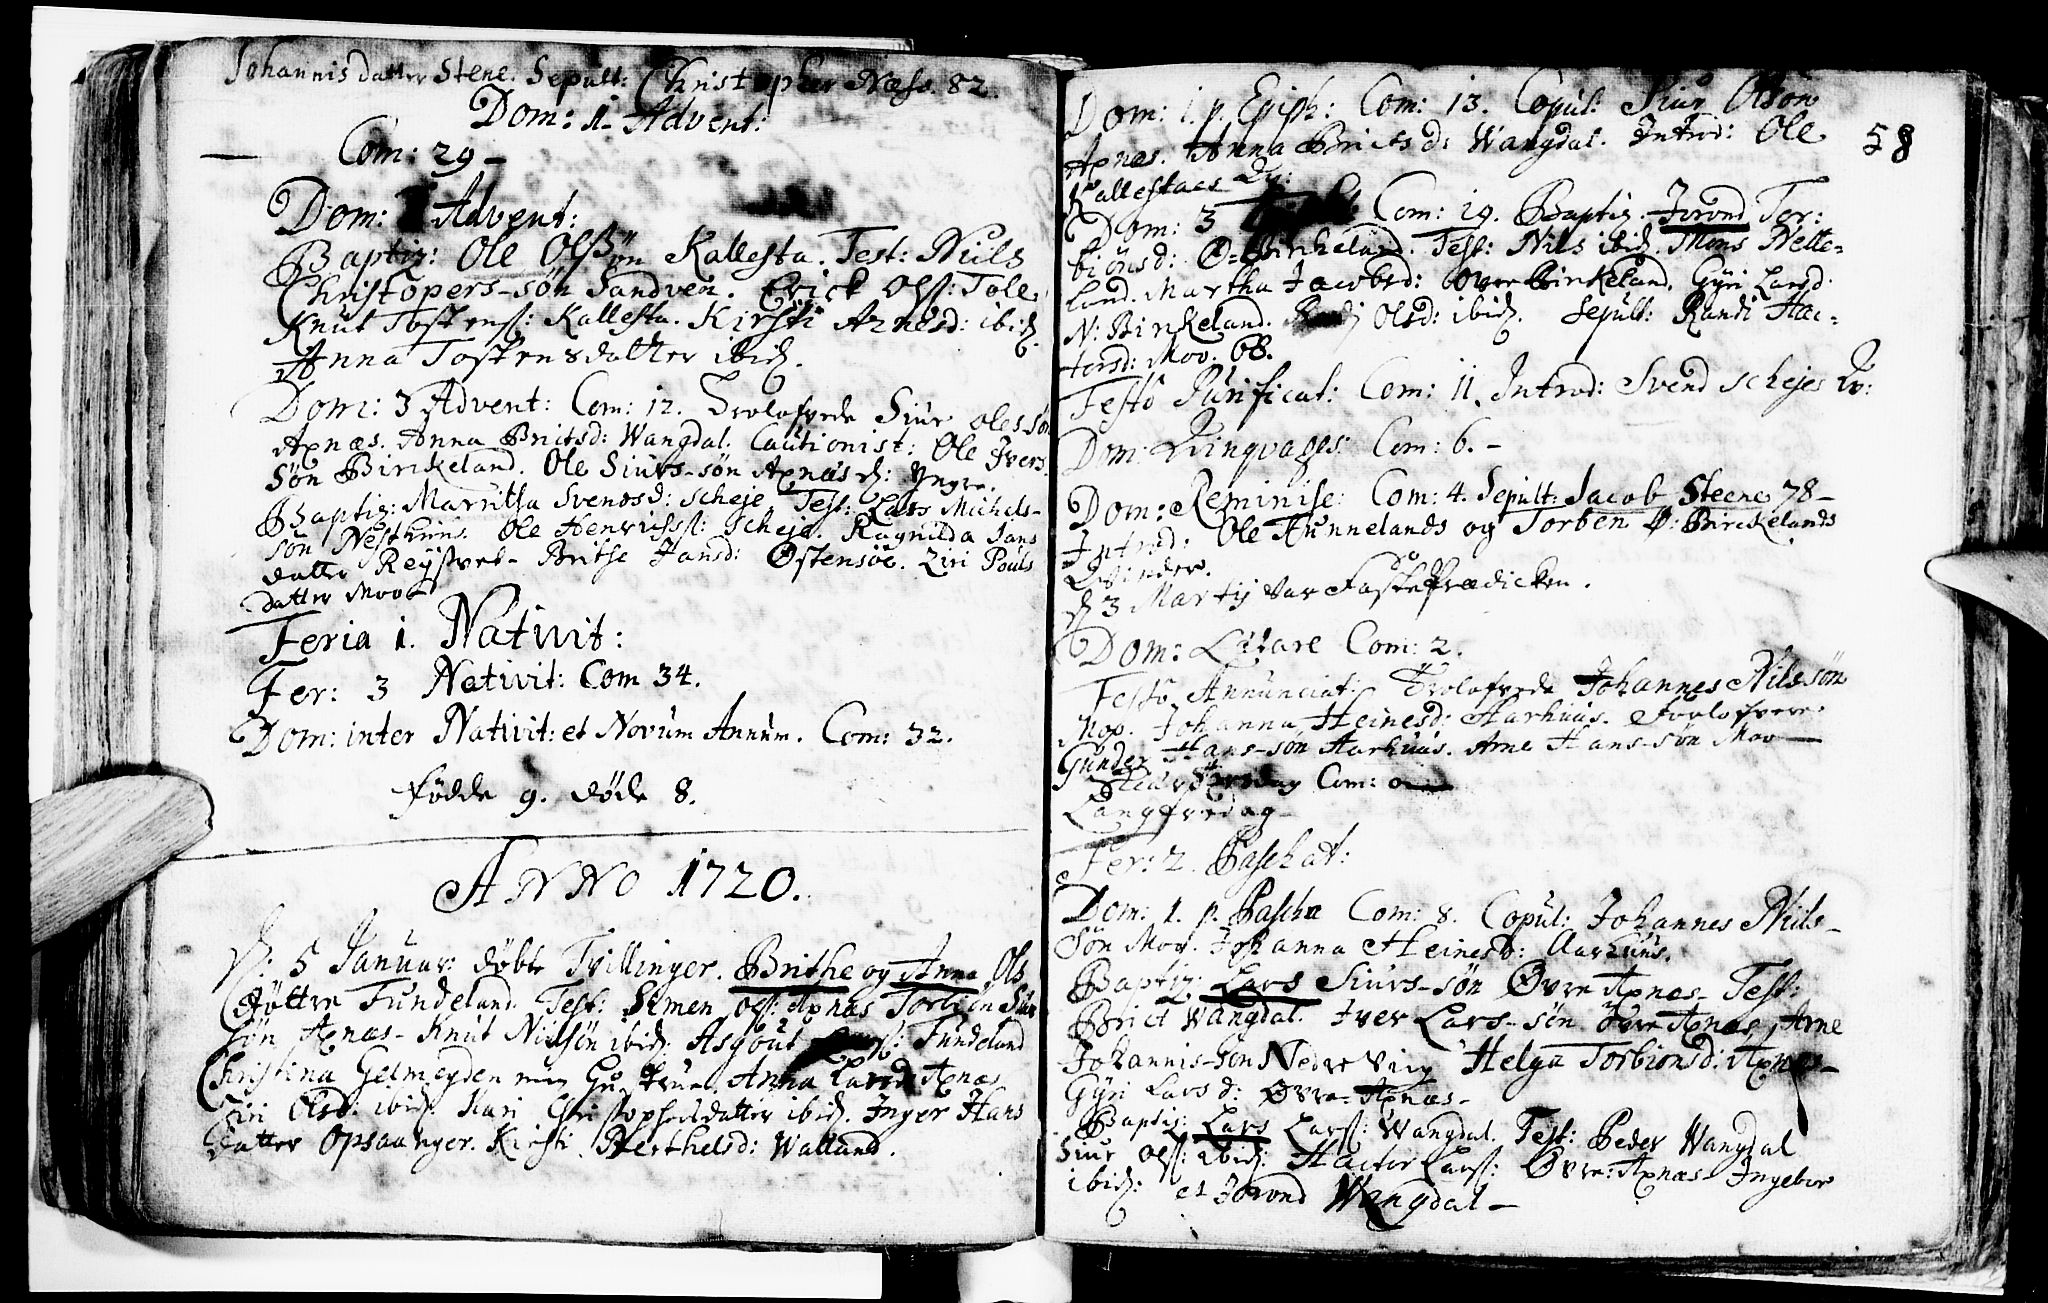 Johannis datter Stene. Sepult: Christopher Næss. 82.
Dom: 1 Advent:
Com: 29 –
Dom: Advent:
Baptiz: Ole Olssøn Kallesta. Test: Niils
Christopers-søn Sandven. Erick Olss: Tole
Knut Tostenss: Kallesta. Kirsti Arnesd: ibid.
Anna Tostensdatter ibid.
Dom: 3 Advent: Com: 12. Trolofvede Siur Oles-søn
Axnæs. Anna Britsd: Wangdal. Cautionist: Ole Ivers
søn Birckeland. Ole Siurs-søn Axnæs d: Yngre.
Baptiz: Marritha Svendsd: Scheje Test: Lars Michels-
søn Nesthuus. Ole Henrichss: Scheje. Ragnilda Jans
datter Reistvet – Brithe Jansd: Østensøe. Ziri Pouls
datter Moe –
Feria 1. Nativit:
Fer: 3 Nativit: Com 34.
Dom: inter Nativit: et Novum Annum. Com: 32.
fødde 9. døde 8.
ANNO 1720.
D: 5 Januar: døbte Tvillinger. Brithe og Anna Ols
døttre Fundeland. Test: Simen Olss: Axnæs Torbiøn Siur
søn Axnæs – Knut Nilsøn ibid: Asgout Fundeland
Christina Gelmeyden min Hustrue Anna Larsd Axnæs
Siri Olsd: ibid. Kari Christophersdatter ibid. Inger Hans
datter Opsaanger. Kirsti Berthelsd: Walland.
58
Dom: 1. p. Epiph: Com: 13. Copul: Siur Olsøn
Axnæs. Anna Britsd: Wangdal. Introd: Ole
Kallestaes Qv:
Dom: 3 Com: 19. Baptiz. Jorond Tor:
biønsd: Ø: Birkeland. Test: Nils ibid. Mons Nette-
land. Martha Jacobsd: Øvre Birkeland. Gyri Larsd:
N: Birkeland. Olsd: ibid. Sepult: Randi Hac-
torsd: Mov. 68.
Festo Purificat: Com: 11. Introd: Svend Schejes Qv:
Dom: Qvinqvages: Com: 6. –
Dom: Reminise: Com: 4. Sepult: Jacob Steene 78 –
Introd: Ole Tunnelands og Torben Ø: Birckelands
Qvinder.
d 3 Martij var Fasteprædicken.
Dom: Lætare Com: 2.
Festo Annunciat: Trolofvede Johannes Nilssøn
Moe. Johanna Heinesd: Aarhuus. Forlofvere:
Gunder Hans-søn Aarhuus. Arne Hans-søn Moe
Skiærtorsdag Com: 0
Langfredag –
Fer: 2. Paschat:
Dom: 1. p. Pascha Com: 8. Copul: Johannes Niils-
søn Mov. Johanna Heinesd: Aarhuus.
Baptiz: Lars Siurs-søn Øvre Axnæs – Test:
Brict Wangdal. Iver Lars-søn Øvre Axnæs, Arne
Johannis-søn Nedre Viig Helga Torbionsd: Axnæs –
Gyri Larsd: Øvre-Axnæs –
Baptiz: Lars Larss: Wangdal. Test: Peder Wangdal
Siur Olss: ibid: Hactor Larss: Øvre: Axnæs Ingebor
ibid: et Jorond Wangdal –